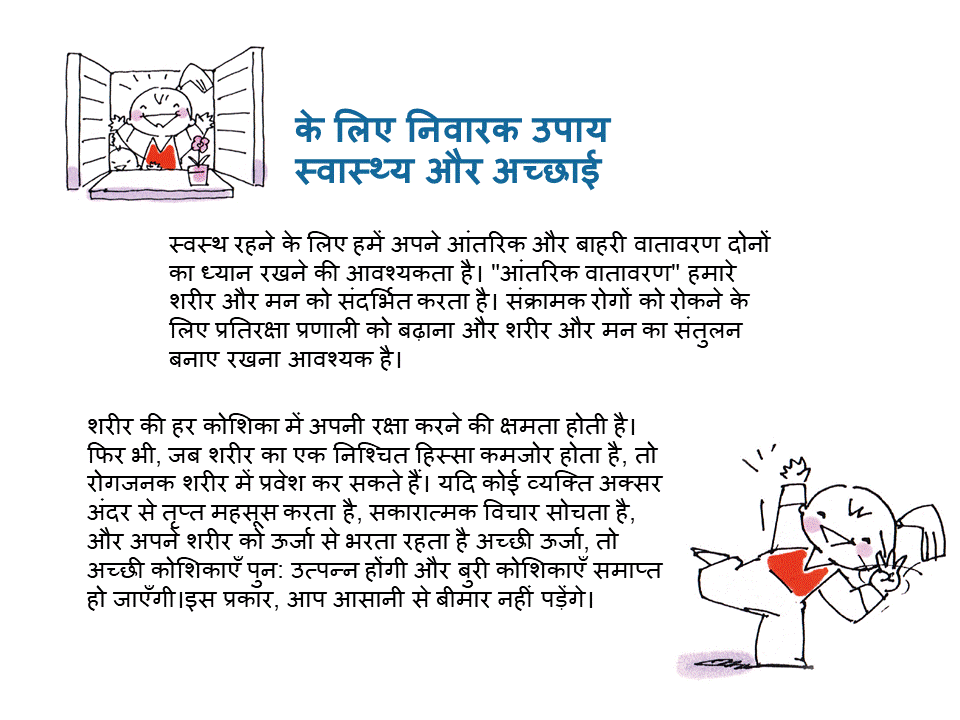 के लिए निवारक उपाय
स्वास्थ्य और अच्छाई
स्वस्थ रहने के लिए हमें अपने आंतरिक और बाहरी वातावरण दोनों
का ध्यान रखने की आवश्यकता है। "आंतरिक वातावरण" हमारे
शरीर और मन को संदर्भित करता है। संक्रामक रोगों को रोकने के
लिए प्रतिरक्षा प्रणाली को बढ़ाना और शरीर और मन का संतुलन
बनाए रखना आवश्यक है।
शरीर की हर कोशिका में अपनी रक्षा करने की क्षमता होती है।
फिर भी, जब शरीर का एक निश्चित हिस्सा कमजोर होता है, तो
रोगजनक शरीर में प्रवेश कर सकते हैं। यदि कोई व्यक्ति अक्सर
अंदर से तृप्त महसूस करता है, सकारात्मक विचार सोचता है,
और अपने शरीर को ऊर्जा से भरता रहता है अच्छी ऊर्जा, तो
अच्छी कोशिकाएँ पुन: उत्पन्न होंगी और बुरी कोशिकाएँ समाप्त
हो जाएँगी।इस प्रकार, आप आसानी से बीमार नहीं पड़ेंगे।